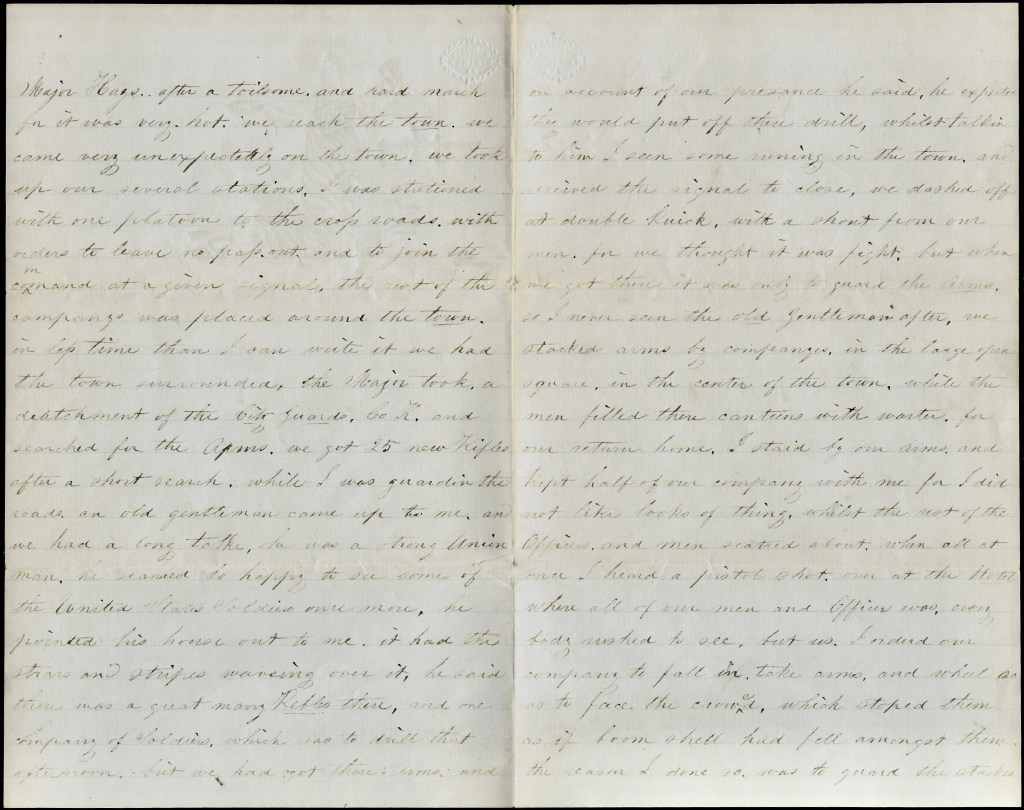 Major Hays.. after a toilsome. and hard march
for it was very. hot. we reach the town. we
came very unexpectetly on the town. we took
up our several stations. I was stationed
with one platoon to the cross roads. with
orders to leave no pass. out. and to join the
comand at a given signal. the rest of the
companys was placed around the town.
in less time than I can write it we had
the town surrounded, the Major took. a
deatchment of the City Guards. Co K. and
searched for the Arms. we got 25 new Rifles
after a short search. while I was guardin the
roads. an old gentleman came up to me. and
we had a long talke, he was a strong Union
man. he seamed so happy to see some of
the United States Soldiers once more, he
pointed his house out to me. it had the
stars and stripes waveing over it, he said
there was a great many Rifles there, and one
company of Soldiers. which was to drill that
afternoon. but we had got there arms. and
on account of our presance he said, he expected
they would put off there drill, whilst talkin
to him I seen some runing in the town. and
received the signal to close, we dashed off
at double kuick, with a shout from our
men. for we thought it was fight. but when
we got there it was only to guard the Arms.
so I never seen the old Gentleman after, we
stacked arms by companyes. in the large open
square. in the center of the town. while the
men filled there canteens with warter. for
our return home. I staid by our arms. and
kept half of our company with me for I did
not like looks of thing. whilst the rest of the
Officers. and men scatred about. when all at
once I heard a pistol shot. over at the Hotel
where all of our men and Officers was. every
body rushed to see. but us. I orderd our
company to fall in. take arms. and wheel so
as to face the crowd, which stoped them
as if boom shell had fell amongst them.
the reason I done so. was to guard the stackes